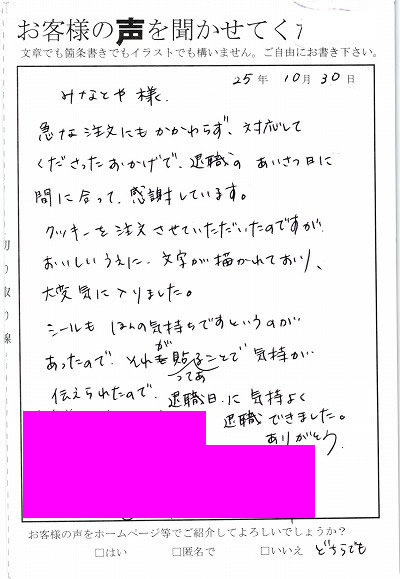 お客様の声を聞かせてく
文章でも箇条書きでもイラストでも構いません。ご自由にお書き下さい。
25年 10月 30日
みなとや様.
急な注文にもかかわらず、対応して
くださったおかげで、退職の あいさつ日に
間に合って、感謝しています。
クッキーを注文させていただいたのですが
おいしいうえに、文字が描かれており、
大変気に入りました。
シールも ほんの気持ちですというのが
あったので、それが貼ってあることで 気持が
伝えられたので、退職日に 気持よく
退職できました。
ありがとう.
切り取り線
お客様の声をホームページ等でご紹介してよろしいでしょうか？
□はい □匿名で □いいえ どちらでも